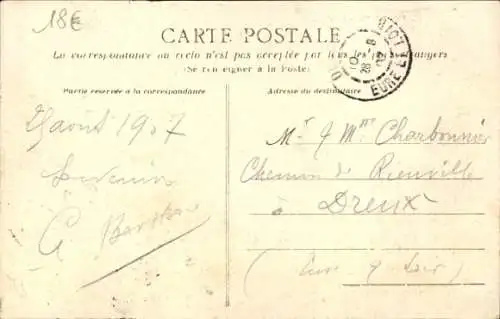 18€
CARTE POSTALE
La correspondance au recto n'est pas acceptée par tous les étrangers
(Se renseigner à la Poste)
Partie réservée à la correspondance
Adresse du destinataire
EURE ET LOIR
28 -8
25 août 1907
Souvenir
G
Mr & Mme Charbonnier
Chemin de Rieuville
à Dreux
(Eure & Loir)